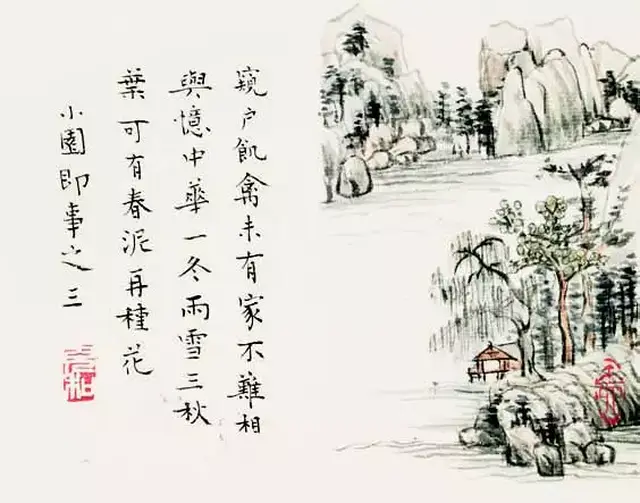 窺户飢禽未有家不難相
與憶中華一冬雨雪三秋
葉可有春泥再種花
小園即事之三